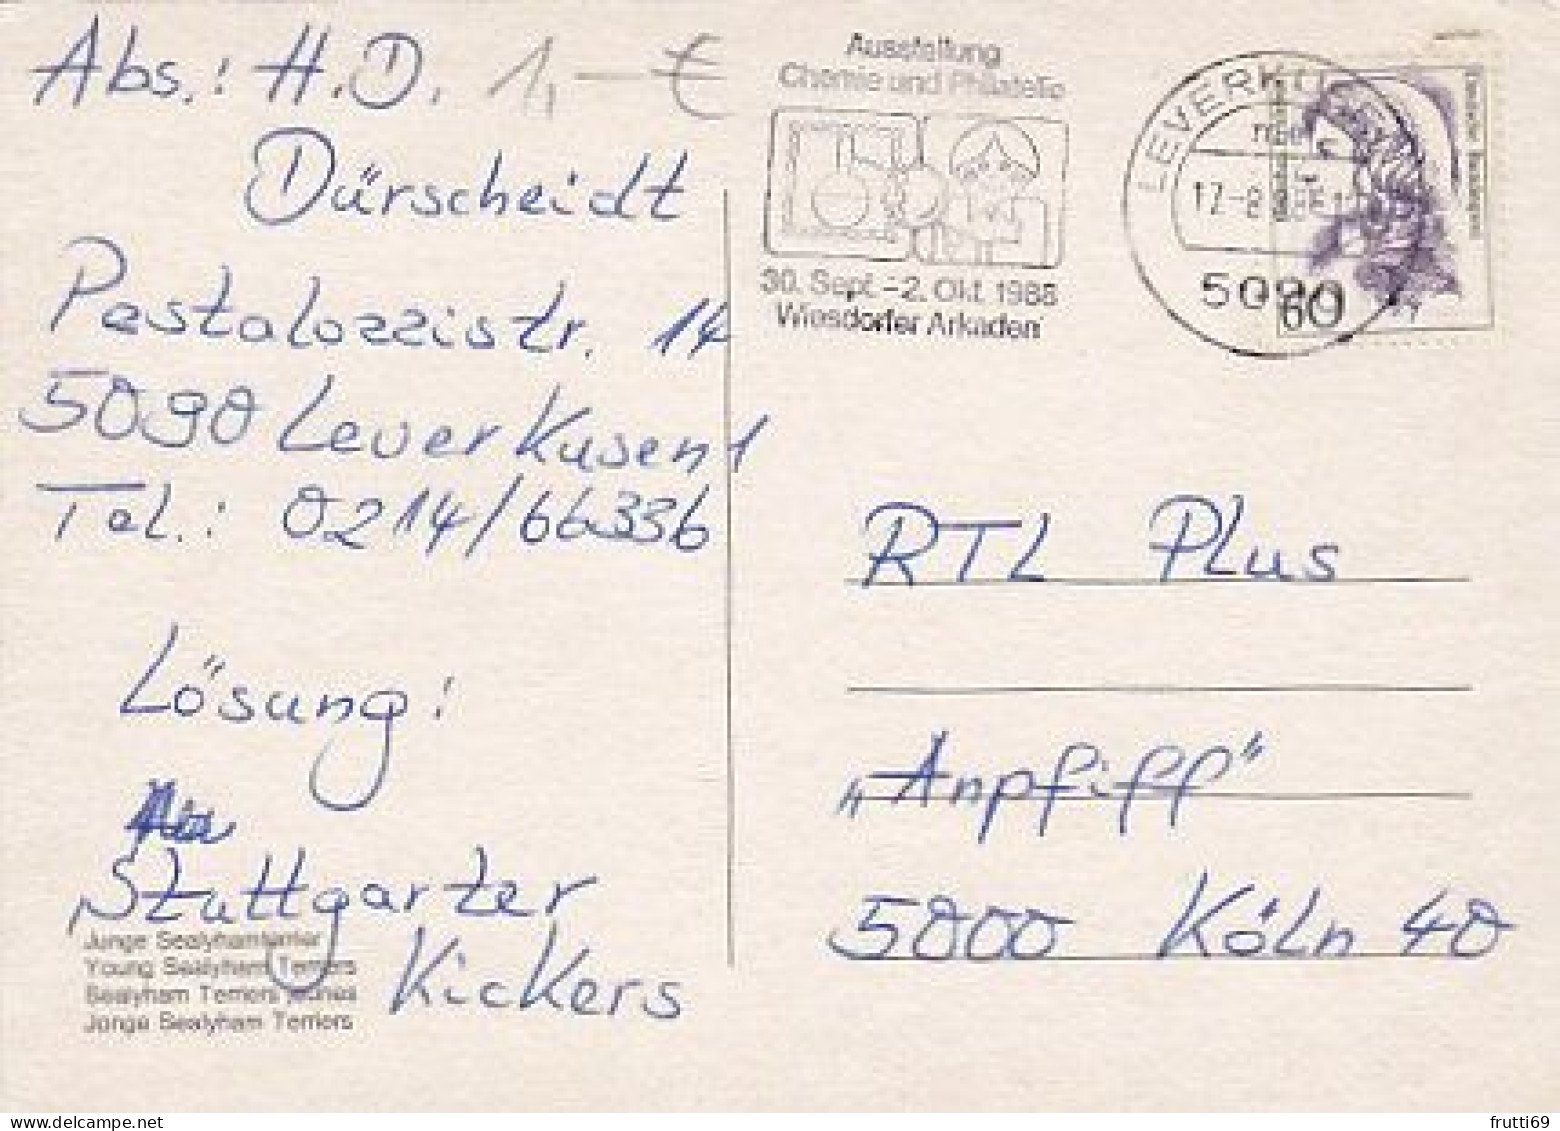 Abs.: H.D. 1,— €
Dürscheidt
Pestalozzistr. 14
5090 Leverkusen 1
Tel.: 0214/66336
Lösung:
Stuttgarter
Kickers
Junge Sealyhamterrier
Young Sealyham Terriers
Sealyham Terriers jeunes
Jonge Sealyham Terriers
Ausstellung
Chemie und Philatelie
30. Sept.-2. Okt. 1988
Wiesdorfer Arkaden
LEVERKUSEN
17.-8.
5090
Deutsche Bundespost
60
RTL Plus
„Anpfiff“
5000 Köln 40
frutti69